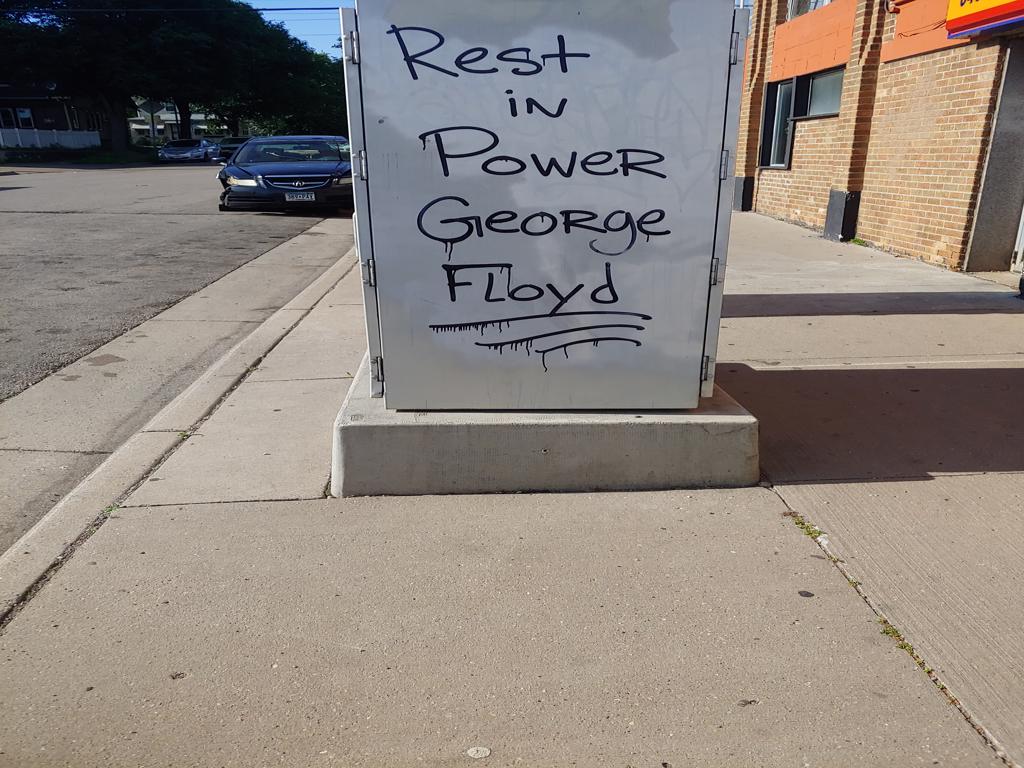 Rest
in
Power
George
Floyd